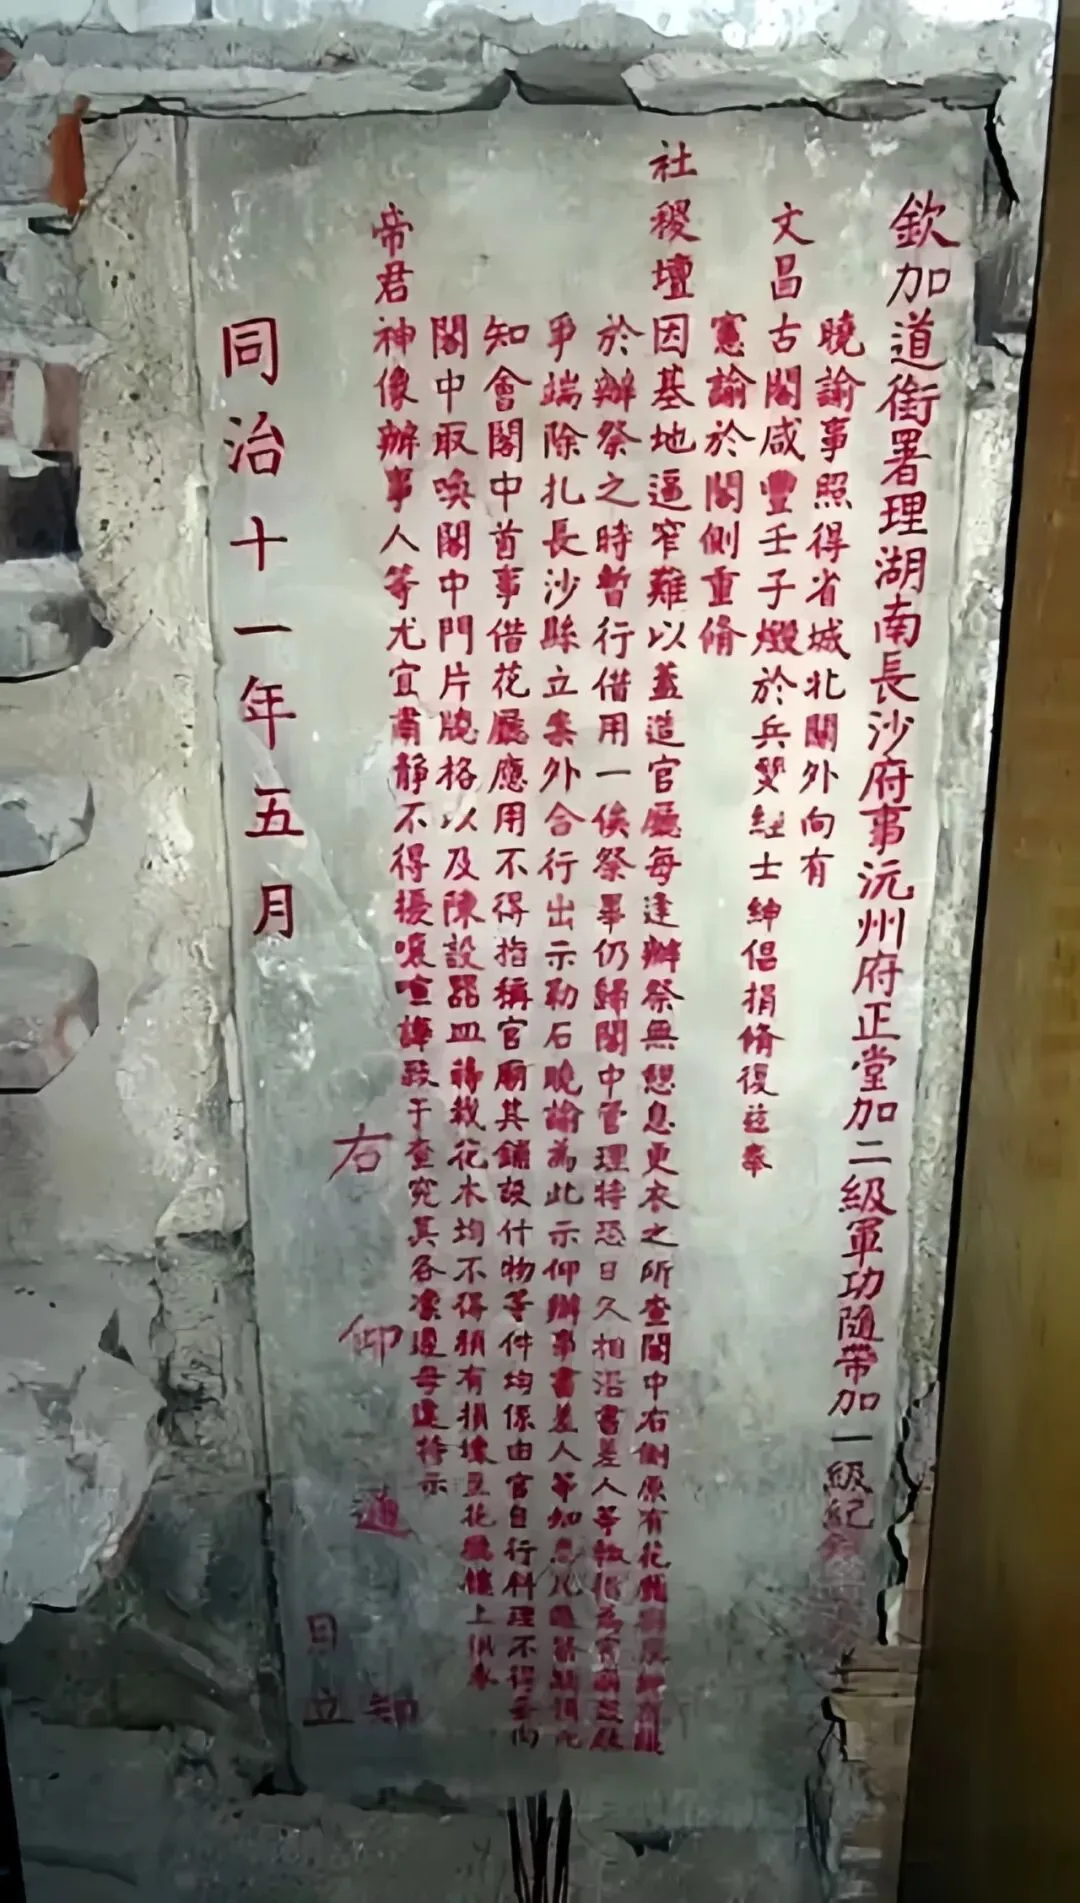 欽加道銜署理湖南長沙府事沅州府正堂加二級軍功隨帶加一級紀
曉諭事照得省城北關外向有
文昌古閣咸豐壬子燬於兵燹經士紳倡捐脩復茲奉
憲諭於閣側重脩
社稷壇因基地逼窄難以蓋造官廳每逢辦祭無憩息更衣之所查閣中右側原有花
於辦祭之時暫行借用一俟祭畢仍歸閣中管理特恐日久相沿書差人等
爭端除札長沙縣立案外合行出示勒石曉諭為此示仰辦事書差人等知悉凡
知會閣中首事借花廳應用不得指稱官廟其鋪設什物等件均係由官自行料理不得
閣中取喚閣中門片牕格以及陳設器皿蒔栽花木均不得稍有損壞至花廳樓上供奉
帝君神像辦事人等尤宜肅靜不得擾嚷喧譁致于查究其各凜遵毋違特示
右仰通知
同治十一年五月日立